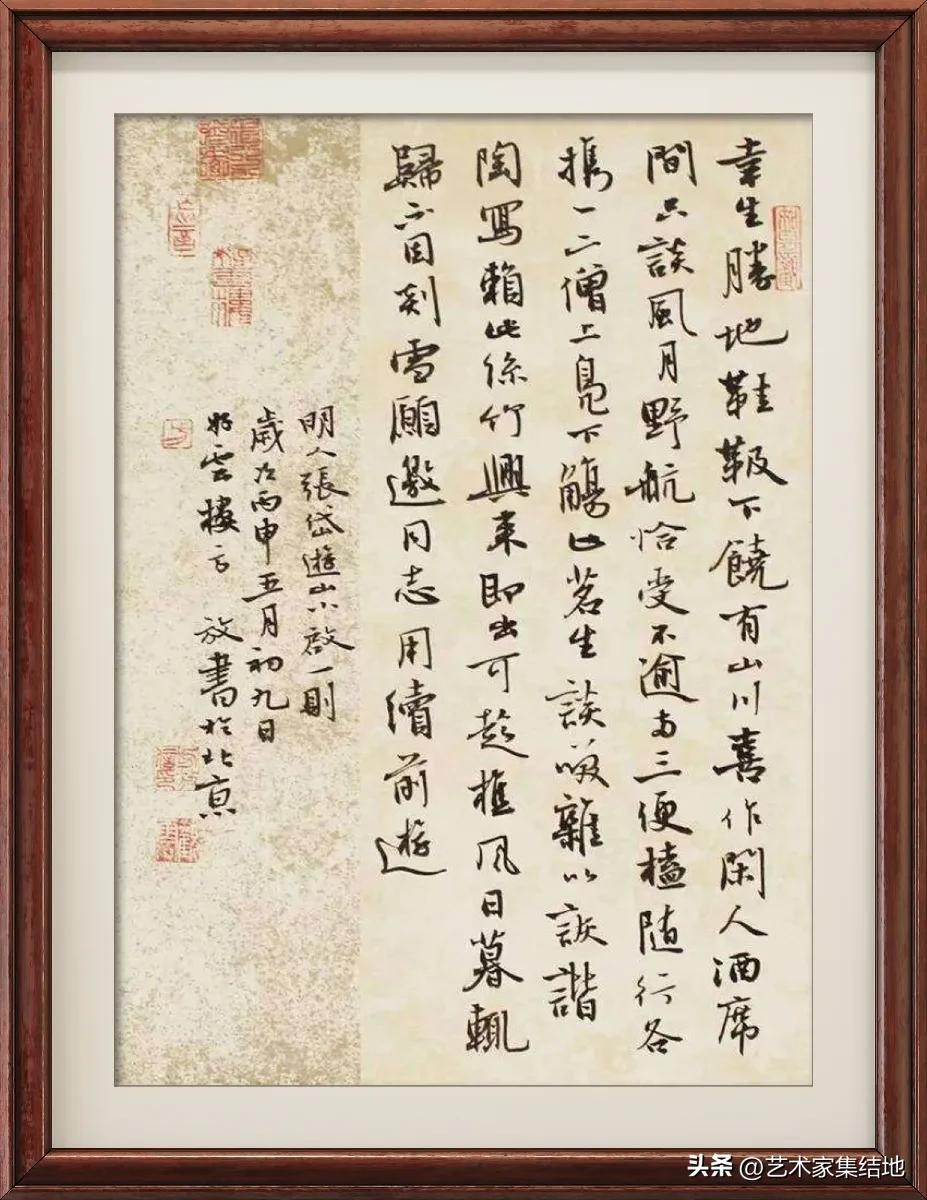 幸生勝地鞋靸下饒有山川喜作閑人酒席
間只談風月野航恰受不逾兩三便榼隨行各
攜一二僧上鳧下觴止茗生談啜雜以詼諧
陶寫賴此絲竹興來即出可趁樵風日暮輒
歸不因剡雪願邀同志用續前遊
明人張岱遊山小啟一則
歲次丙申五月初九日
雲樓方放書於北京
头条 @艺术家集结地